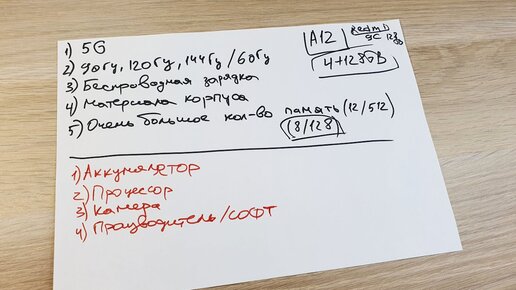 1) 5G
2) 90Гц, 120Гц, 144Гц/60Гц
3) Беспроводная зарядка
4) Материала корпуса
5) Очень большое кол-во память (12/512)
(8/128)
A12
Redmi
9C
4+128GB
1) Аккумулятор
2) Процессор
3) Камера
4) Производитель/СОФТ